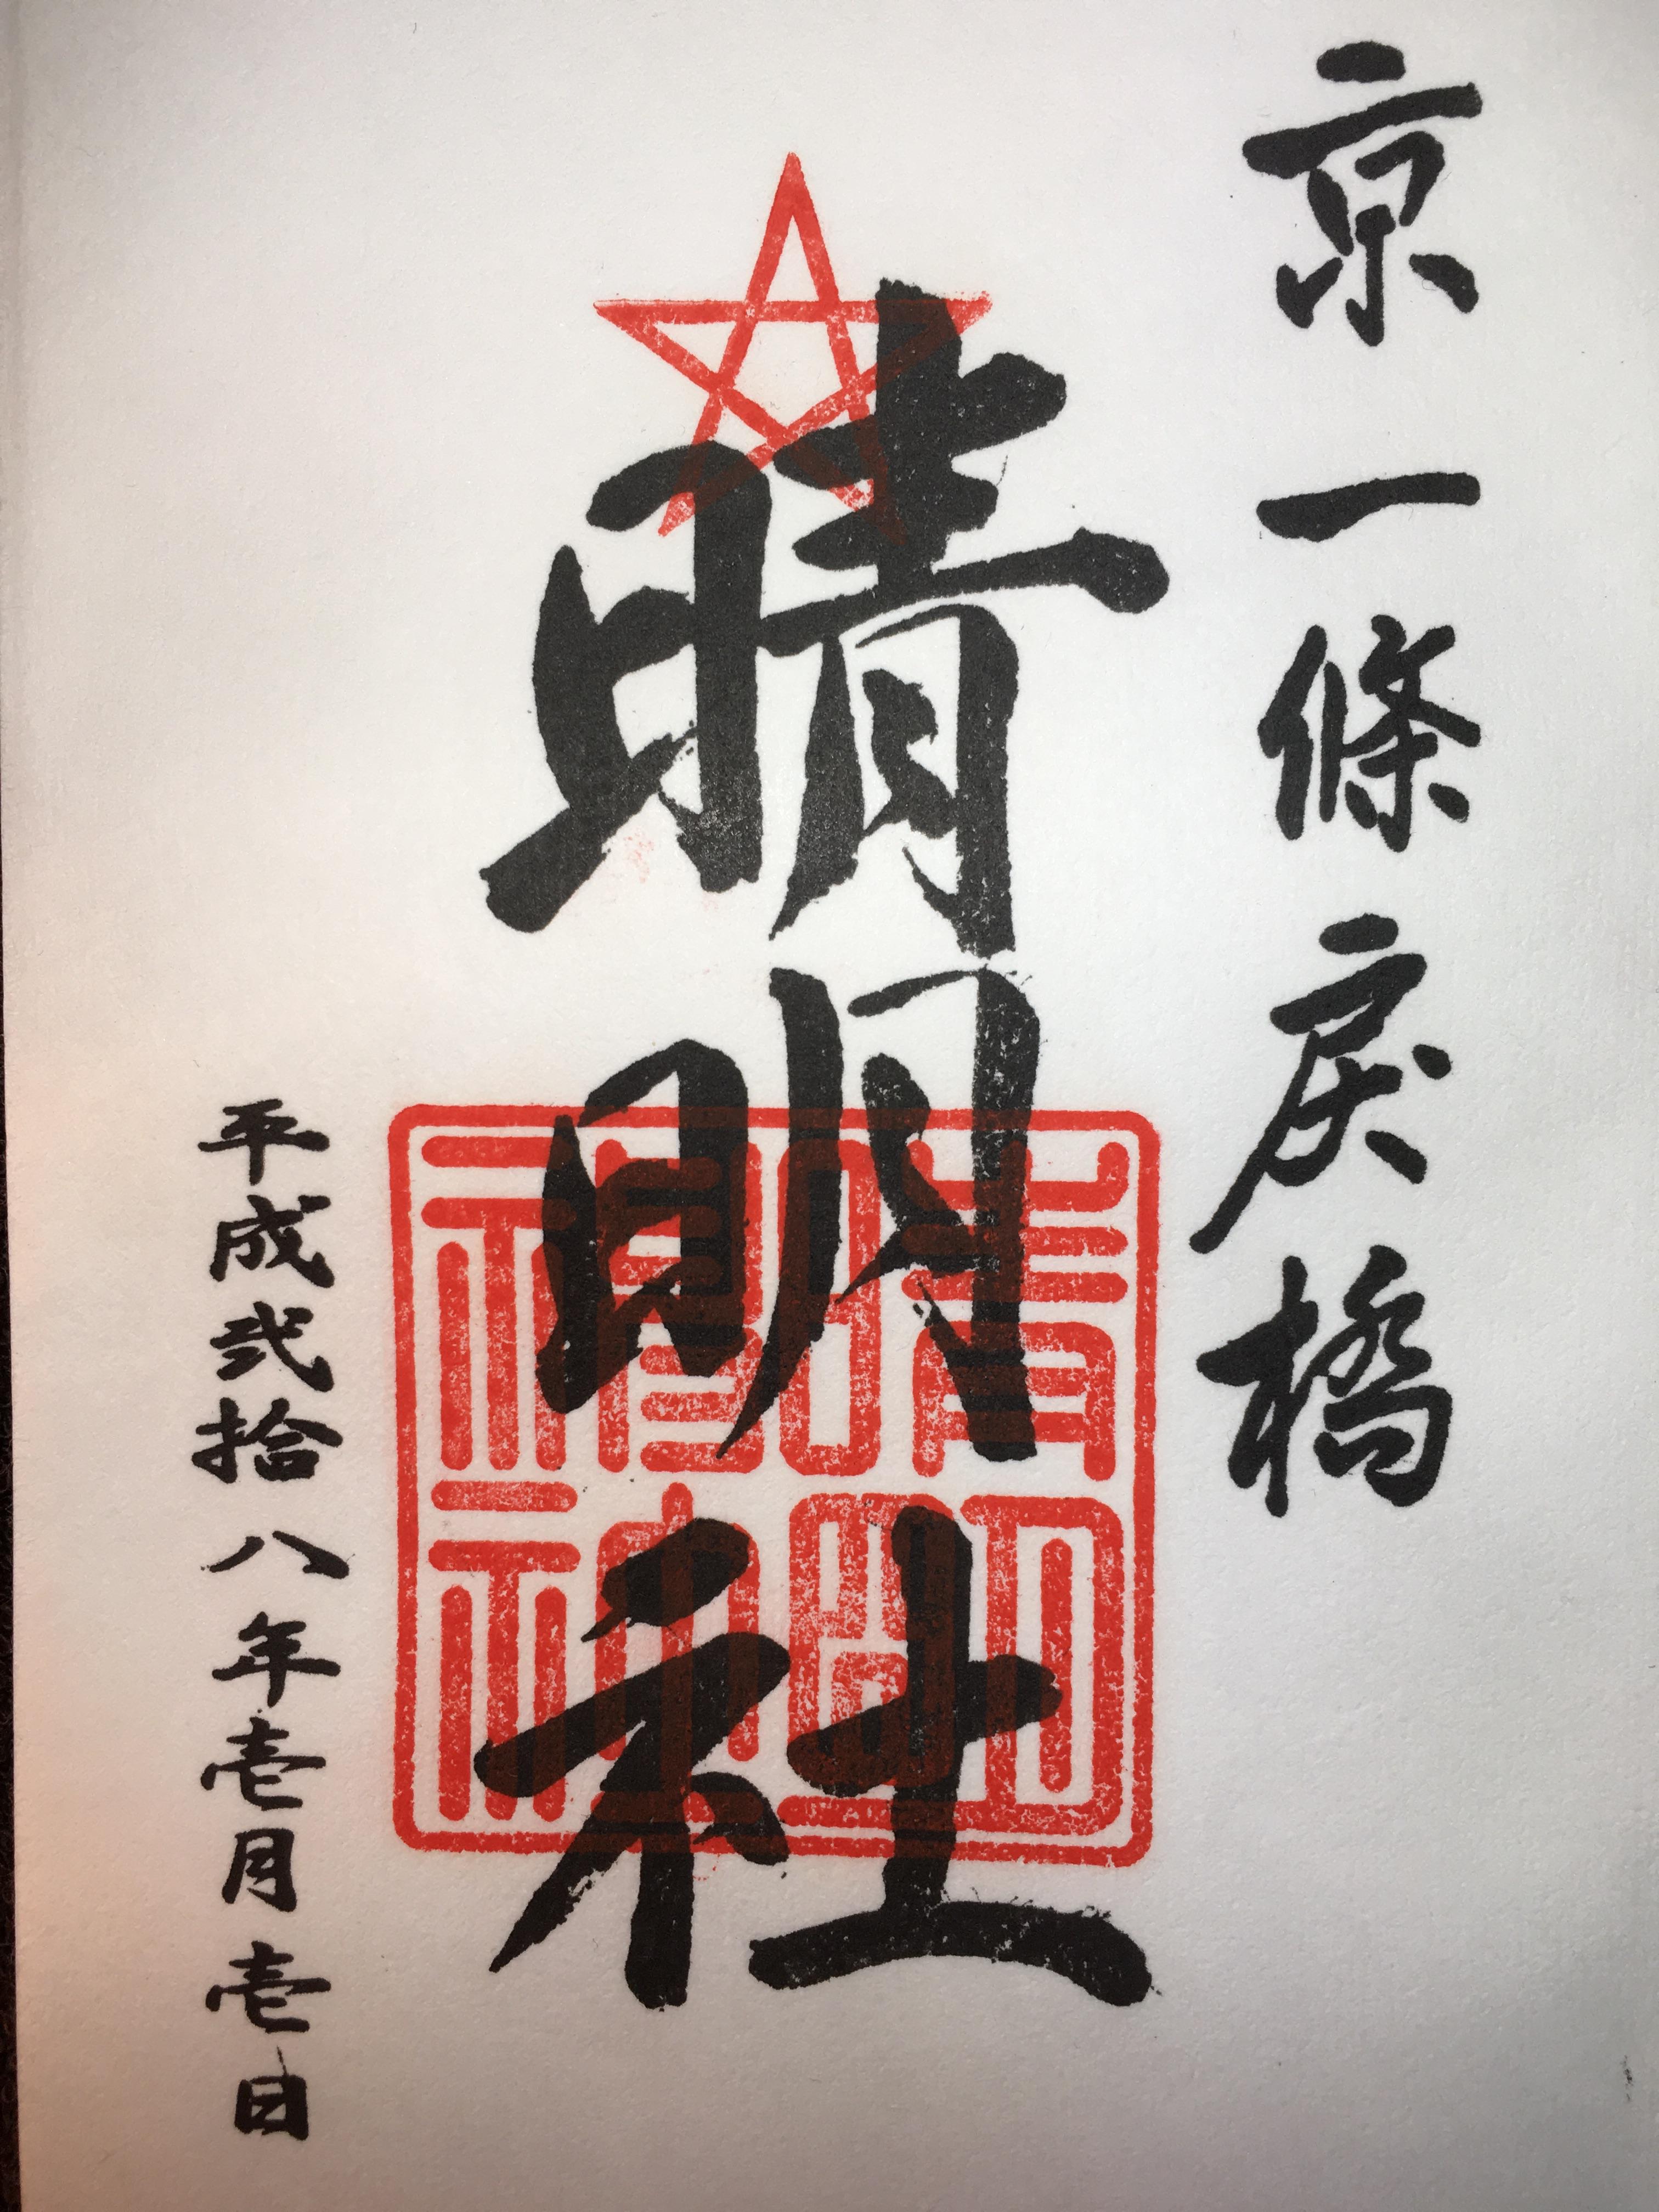 京一條戻橋
晴明社
晴明神社
平成弐拾八年壱月壱日